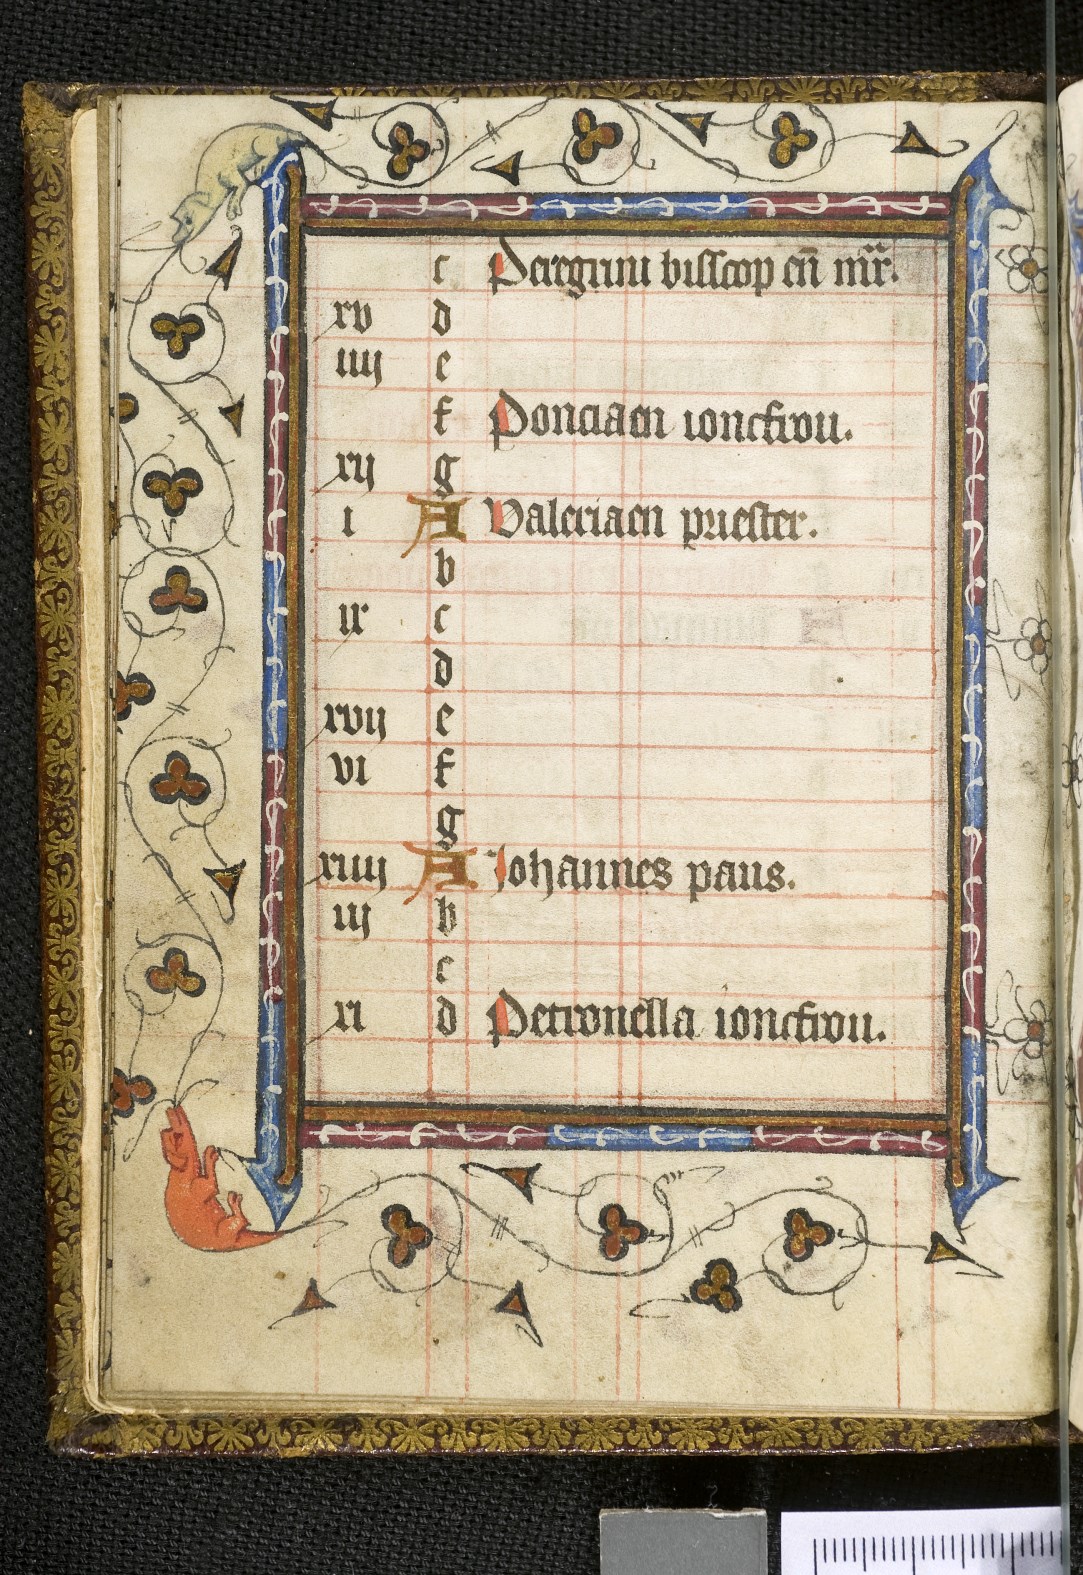 c Peregrini bisscop en̄ mr̄.
xv d
iiij e
f Ponciaen ioncfrou.
xij g
i A Valeriaen priester.
b
ix c
d
xvij e
vi f
g
xiiij A Johannes paus.
iij b
c
xi d Petronella ioncfrou.